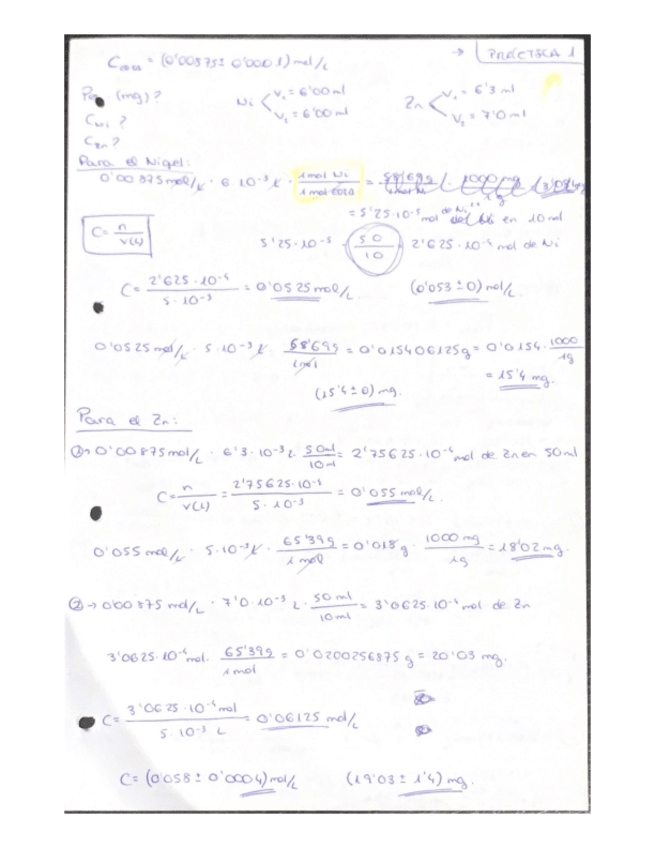 → PRÁCTICA 1
C = (0'00875 ± 0'0001) mol/L
(mg)?
Ni < V₁ = 6'00 ml
V₂ = 6'00 ml
Zn < V₁ = 6'3 ml
V₂ = 7'0 ml
C Ni ?
C Zn ?
Para el Níquel:
0'00875 mol/L · 6·10⁻³ L · 1 mol Ni / 1 mol EDTA =
= 5'25·10⁻⁵ mol de Ni en 10 ml
C = n / V(L)
5'25·10⁻⁵ · 50 / 10 = 2'625·10⁻⁴ mol de Ni
C = 2'625·10⁻⁴ / 5·10⁻³ = 0'0525 mol/L. (0'053 ± 0) mol/L
0'0525 mol/L · 5·10⁻³ L · 58'69g / 1 mol = 0'015406125g = 0'0154 · 1000 / 1g
= 15'4 mg.
(15'4 ± 0) mg.
Para el Zn:
①→ 0'00875 mol/L · 6'3·10⁻³ L · 50ml / 10ml = 2'75625·10⁻⁴ mol de Zn en 50ml
C = n / V(L) = 2'75625·10⁻⁴ / 5·10⁻³ = 0'055 mol/L.
0'055 mol/L · 5·10⁻³ L · 65'39g / 1 mol = 0'018g · 1000 mg / 1g = 18'02 mg.
②→ 0'00875 mol/L · 7'0·10⁻³ L · 50 ml / 10 ml = 3'0625·10⁻⁴ mol de Zn
3'0625·10⁻⁴ mol. 65'39g / 1 mol = 0'0200256875 g = 20'03 mg.
C = 3'0625·10⁻⁴ mol / 5·10⁻³ L = 0'06125 mol/L
C = (0'058 ± 0'0004) mol/L (19'03 ± 1'4) mg.